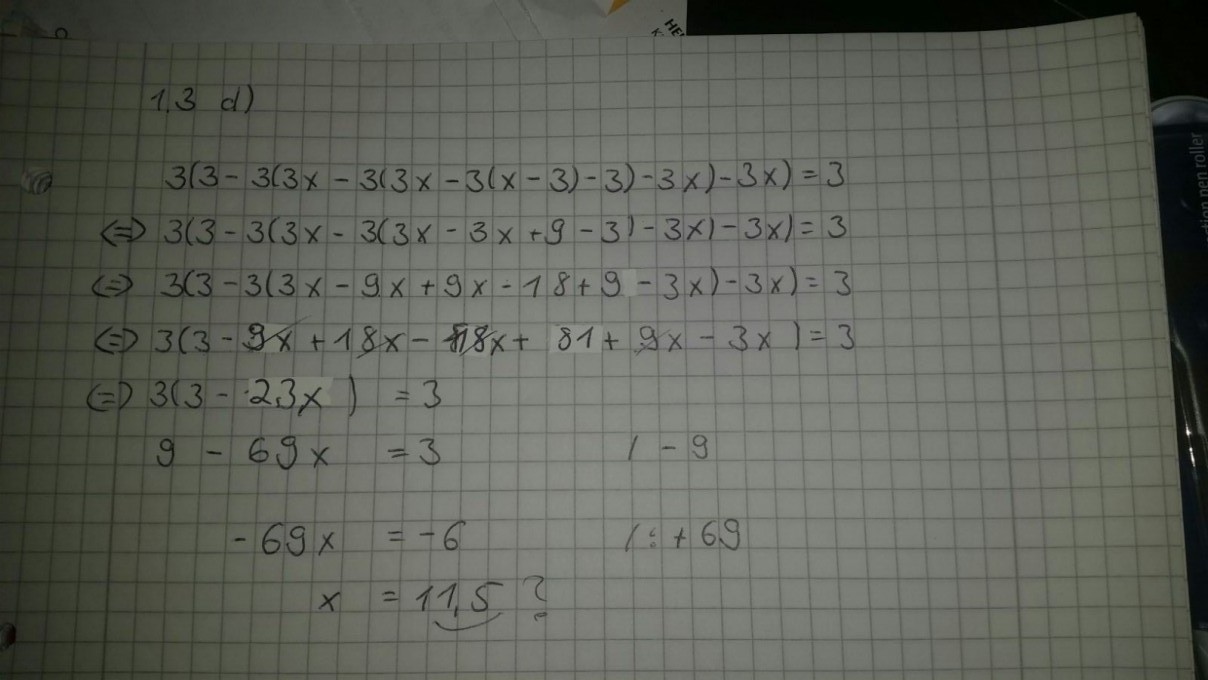 HE
1.3 d)
3(3 - 3(3x - 3(3x - 3(x - 3) - 3) - 3x) - 3x) = 3
(=) 3(3 - 3(3x - 3(3x - 3x + 9 - 3) - 3x) - 3x) = 3
(=) 3(3 - 3(3x - 9x + 9x - 18 + 9 - 3x) - 3x) = 3
(=) 3(3 - 9x + 18x - 18x + 81 + 9x - 3x) = 3
(=) 3(3 - 23x) = 3
9 - 69x = 3 / - 9
- 69x = - 6 / : + 69
x = 11,5 ?
pen roller